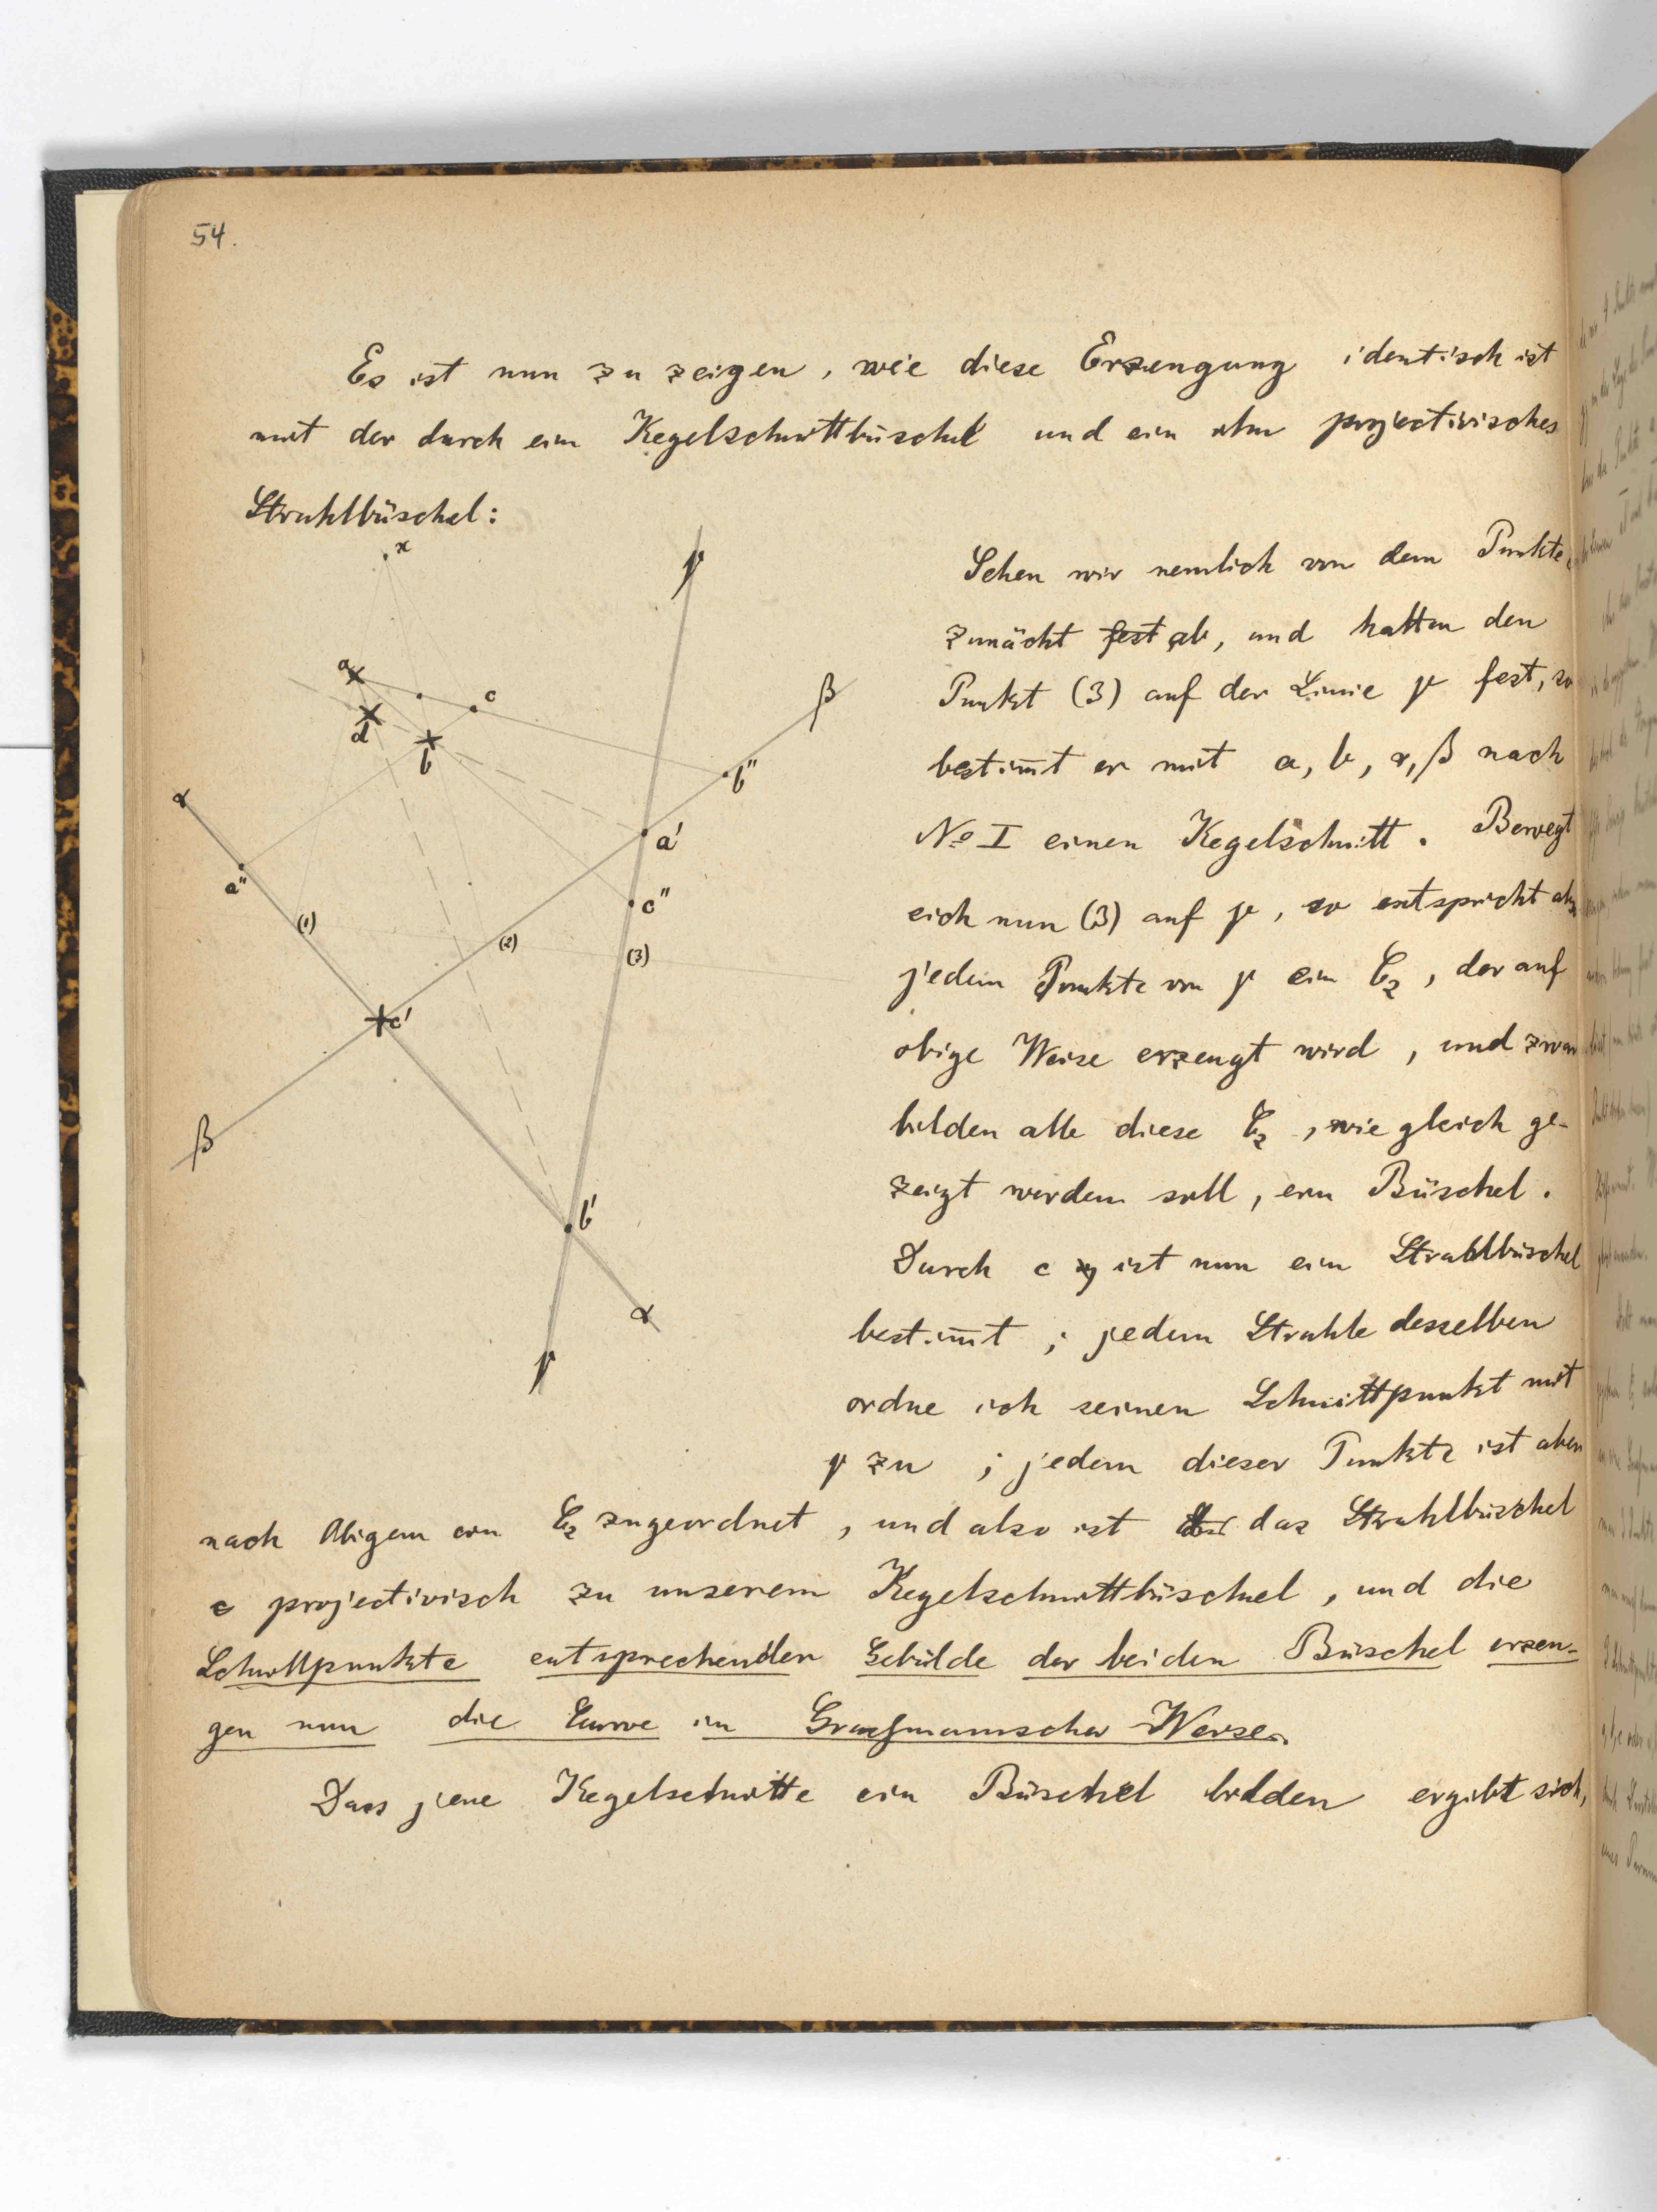 54.
Es ist nun zu zeigen, wie diese Erzeugung identisch ist
mit der durch ein Kegelschnittbüschel und ein ihm projectivisches
Strahlbüschel:
Sehen wir nemlich von dem Punkte
zunächt fest ab, und halten den
Punkt (3) auf der Linie γ fest, so
bestim̄t er mit a, b, α, β nach
No I einen Kegelschnitt. Bewegt
sich nun (3) auf γ, so entspricht also
jedem Punkte von γ ein C₂, der auf
obige Weise erzeugt wird, und zwar
bilden alle diese C₂, wie gleich ge-
zeigt werden soll, ein Büschel.
Durch c ist nun ein Strahlbüschel
bestim̄t; jedem Strahle desselben
ordne ich seinen Schnittpunkt mit
γ zu; jedem dieser Punkte ist aber
nach Obigem ein C₂ zugeordnet, und also ist das Strahlbüschel
c projectivisch zu unserem Kegelschnittbüschel, und die
Schnittpunkte entsprechender Gebilde der beiden Büschel erzeu-
gen nun die Curve in Graßmannscher Weise.
Dass jene Kegelschnitte ein Büschel bilden ergibt sich,
x
γ
a
c
d
b
β
b"
α
a'
a"
c"
(1)
(2)
(3)
c'
β
b'
α
γ